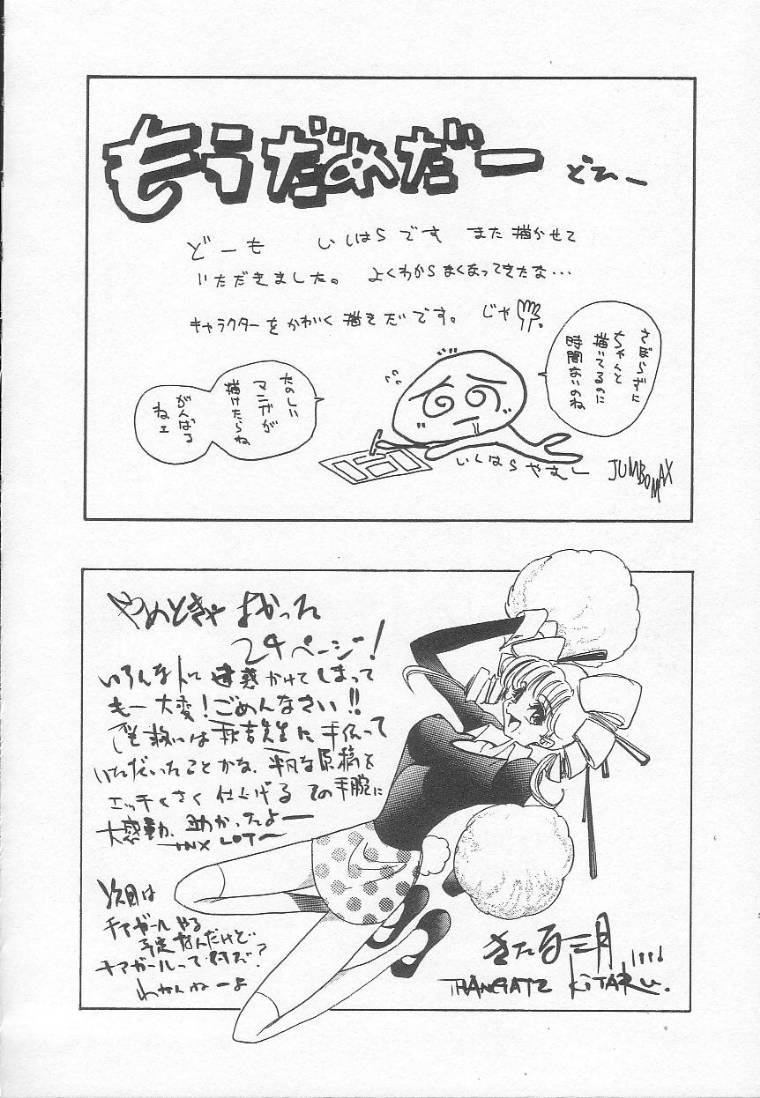 もうだめだー
どひー
どーも いしはらです また描かせて
いただきました。 よくわからなくなってきたな…
キャラクターをかわいく描きたいです。 じゃ
さぼらずに
ちゃんと
描いてるのに
時間ないのね
たのしい
マンガが
描けたらね
がんばる
ねェ
いしはらやすしー
JUMBOMAX
やめときゃよかった
24ページ!
いろんな人に迷惑かけてしまって
もー大変!ごめんなさい!!
でも救いは 先生に手伝って
いただいたことかな、平凡な原稿を
エッチくさく仕上げるその手腕に
大感動、助かったよー
TNX LOTー
次回は
チアガールやる
予定なんだけど…
チアガールって何だ?
わかんねーよ
きたる三月
KITARU.